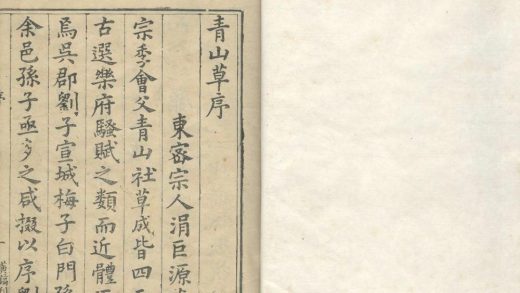 青山草序
東密宗人涓巨源
宗季會父青山社草成皆四
古選樂府騷賦之類而近體
烏吳郡劉子宣城梅子白門孫
余邑孫子亟多之咸掇以序
序
一